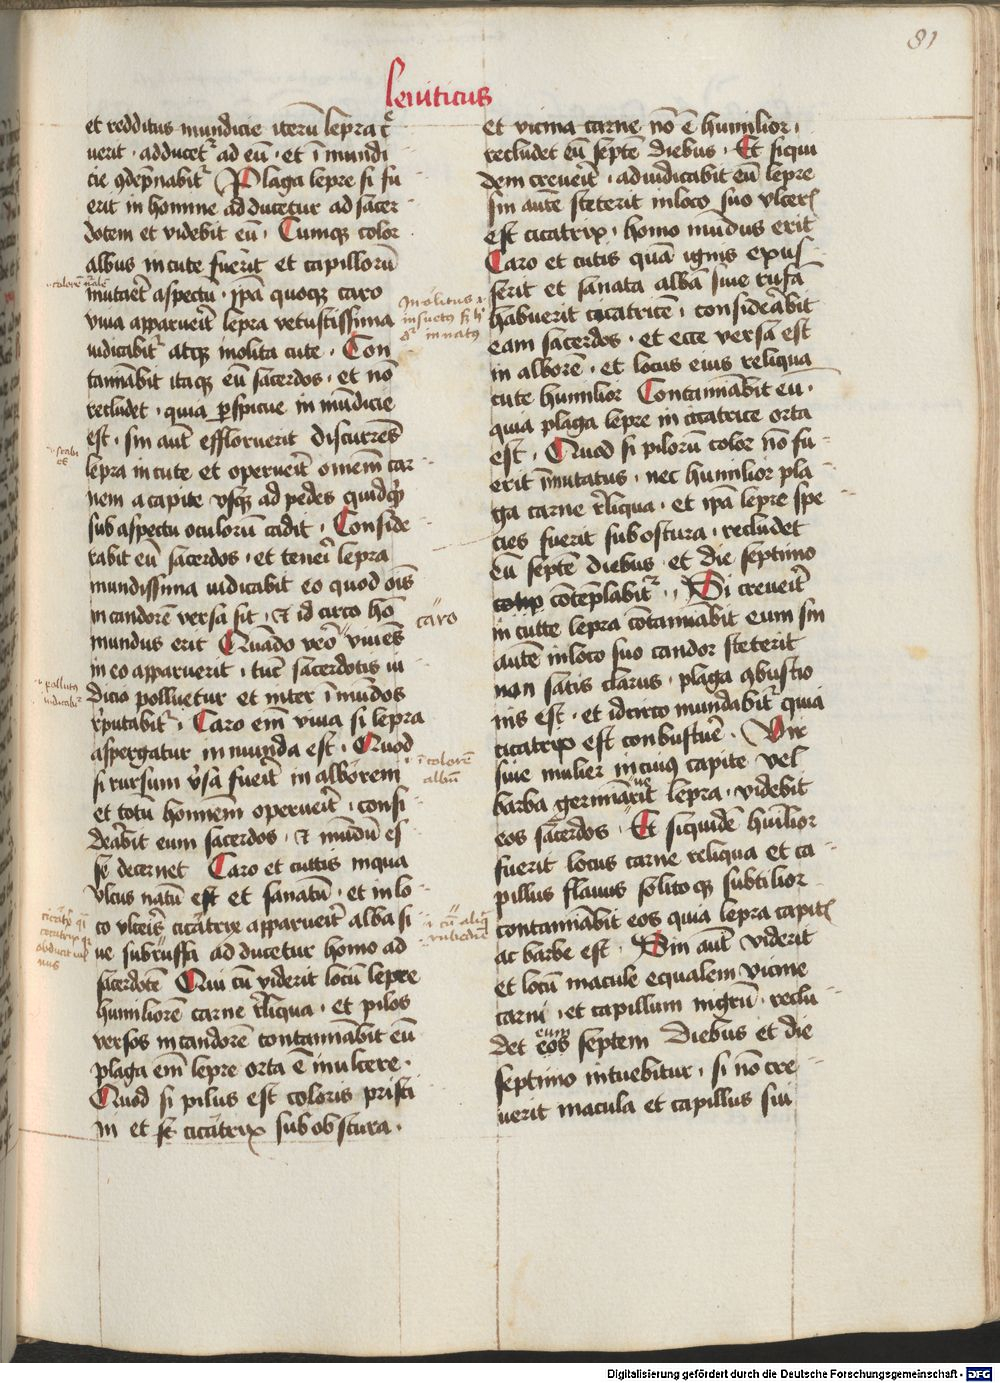 81
leuiticus
et redditus mundicie iterū lepra c̄
uerit · adducet᷑ ad eū · et ī mundi
cie ꝯdēpnabit᷑ Plaga lepre si fu
erit in homine adducetur ad sacer
dotem et videbit eū · Cumqꝫ color
albus in cute fuerit et capillorū
mutaūit aspectū · ip̄a quoqꝫ caro
viua apparueīt lepra vetustissima
iudicabit᷑ atqꝫ inolita cute · Con
tamīabit itaqꝫ eū sacerdos · et nō
recludet · quia ꝑspicue inmūdicie
est · sin aut̄ effloruerit discurrēs
lepra in cute et operueīt omnem car
nem a capite vsqꝫ ad pedes quidqͥd
sub aspectu oculorū cadit · Conside
rabit eū sacerdos · et teneri lepra
mundissima iudicabit eo quod oīs
in candorē versa sit · et id circo hō
mundus erit Quādo veō viuēs
in eo apparuerit · tūc sacerdotis iu
dicio polluetur et inter īmūdos
r̄putabit᷑ · Caro em̄ viua si lepra
aspergatur inmunda est · Quod
si rursum v̄sa fueīt in alborem
et totū hominem operueīt · consi
deābit eum sacerdos · et mūdū es
se decernet Caro et cuttis in qua
vlcus natū est et sanatū · et in lo
co vlceīs cicatrix apparueīt alba si
ue subruffa adducetur homo ad
sacerdotē Qui cū viderit locū lepre
humiliorē carne r̄liqua · et pilos
versos in candorē contamīabit eū
plaga em̄ lepre orta ē in vlcere ·
Quod si pilus est coloris pristi
ni et cicatrix subobscura ·
et vicina carne nō ē humilior ·
recludet eū septē diebus · Et siqui
dem creueīt · adiudicabit eū lepre
sin autē steterit in loco suo vlceris
est cicatrix · homo mūdus erit
Caro et cutis quā ignis exus
serit et sanata albā siue rufā
habuerit cicatricē · consideābit
eam sacerdos · et ecce versa est
in alborē · et locus eius reliqua
cute humilior Contamīabit eū ·
quia plaga lepre in cicatrice orta
est · Quod si pilorū color nō fu
erit īmutatus · nec humilior pla
ga carne r̄liqua · et ip̄a lepre spe
cies fuerit subobscura · recludet
eū septē diebus · et die septimo
cōtēplabit᷑ · Si creueīt
in cutte lepra cōtamīabit eum sin
autē in loco suo candor steterit
non satis clarus · plaga ꝯbustio
nis est · et idcirco mundabit᷑ quia
cicatrix est combusture · Vir
siue mulier in cuiꝰ capite vel
barba germinauerit lepra · videbit
eos sacerdos · Et siquidē humilior
fuerit locus carne reliqua et ca
pillus flauus solitoqꝫ subtilior
contamīabit eos quia lepra capitis
ac barbe est · Sin aut̄ viderit
et locū macule equalem vicine
carni · et capillum nigrū · reclu
det eum eos septem diebus et die
septimo intuebitur · si nō cre
uerit macula et capillus sui
colorē
inolitus
insuetꝰ
innatꝰ
caro
pollutꝰ
iudicabit᷑
colorē
albū
Digitalisierung gefördert durch die Deutsche Forschungsgemeinschaft - DFG